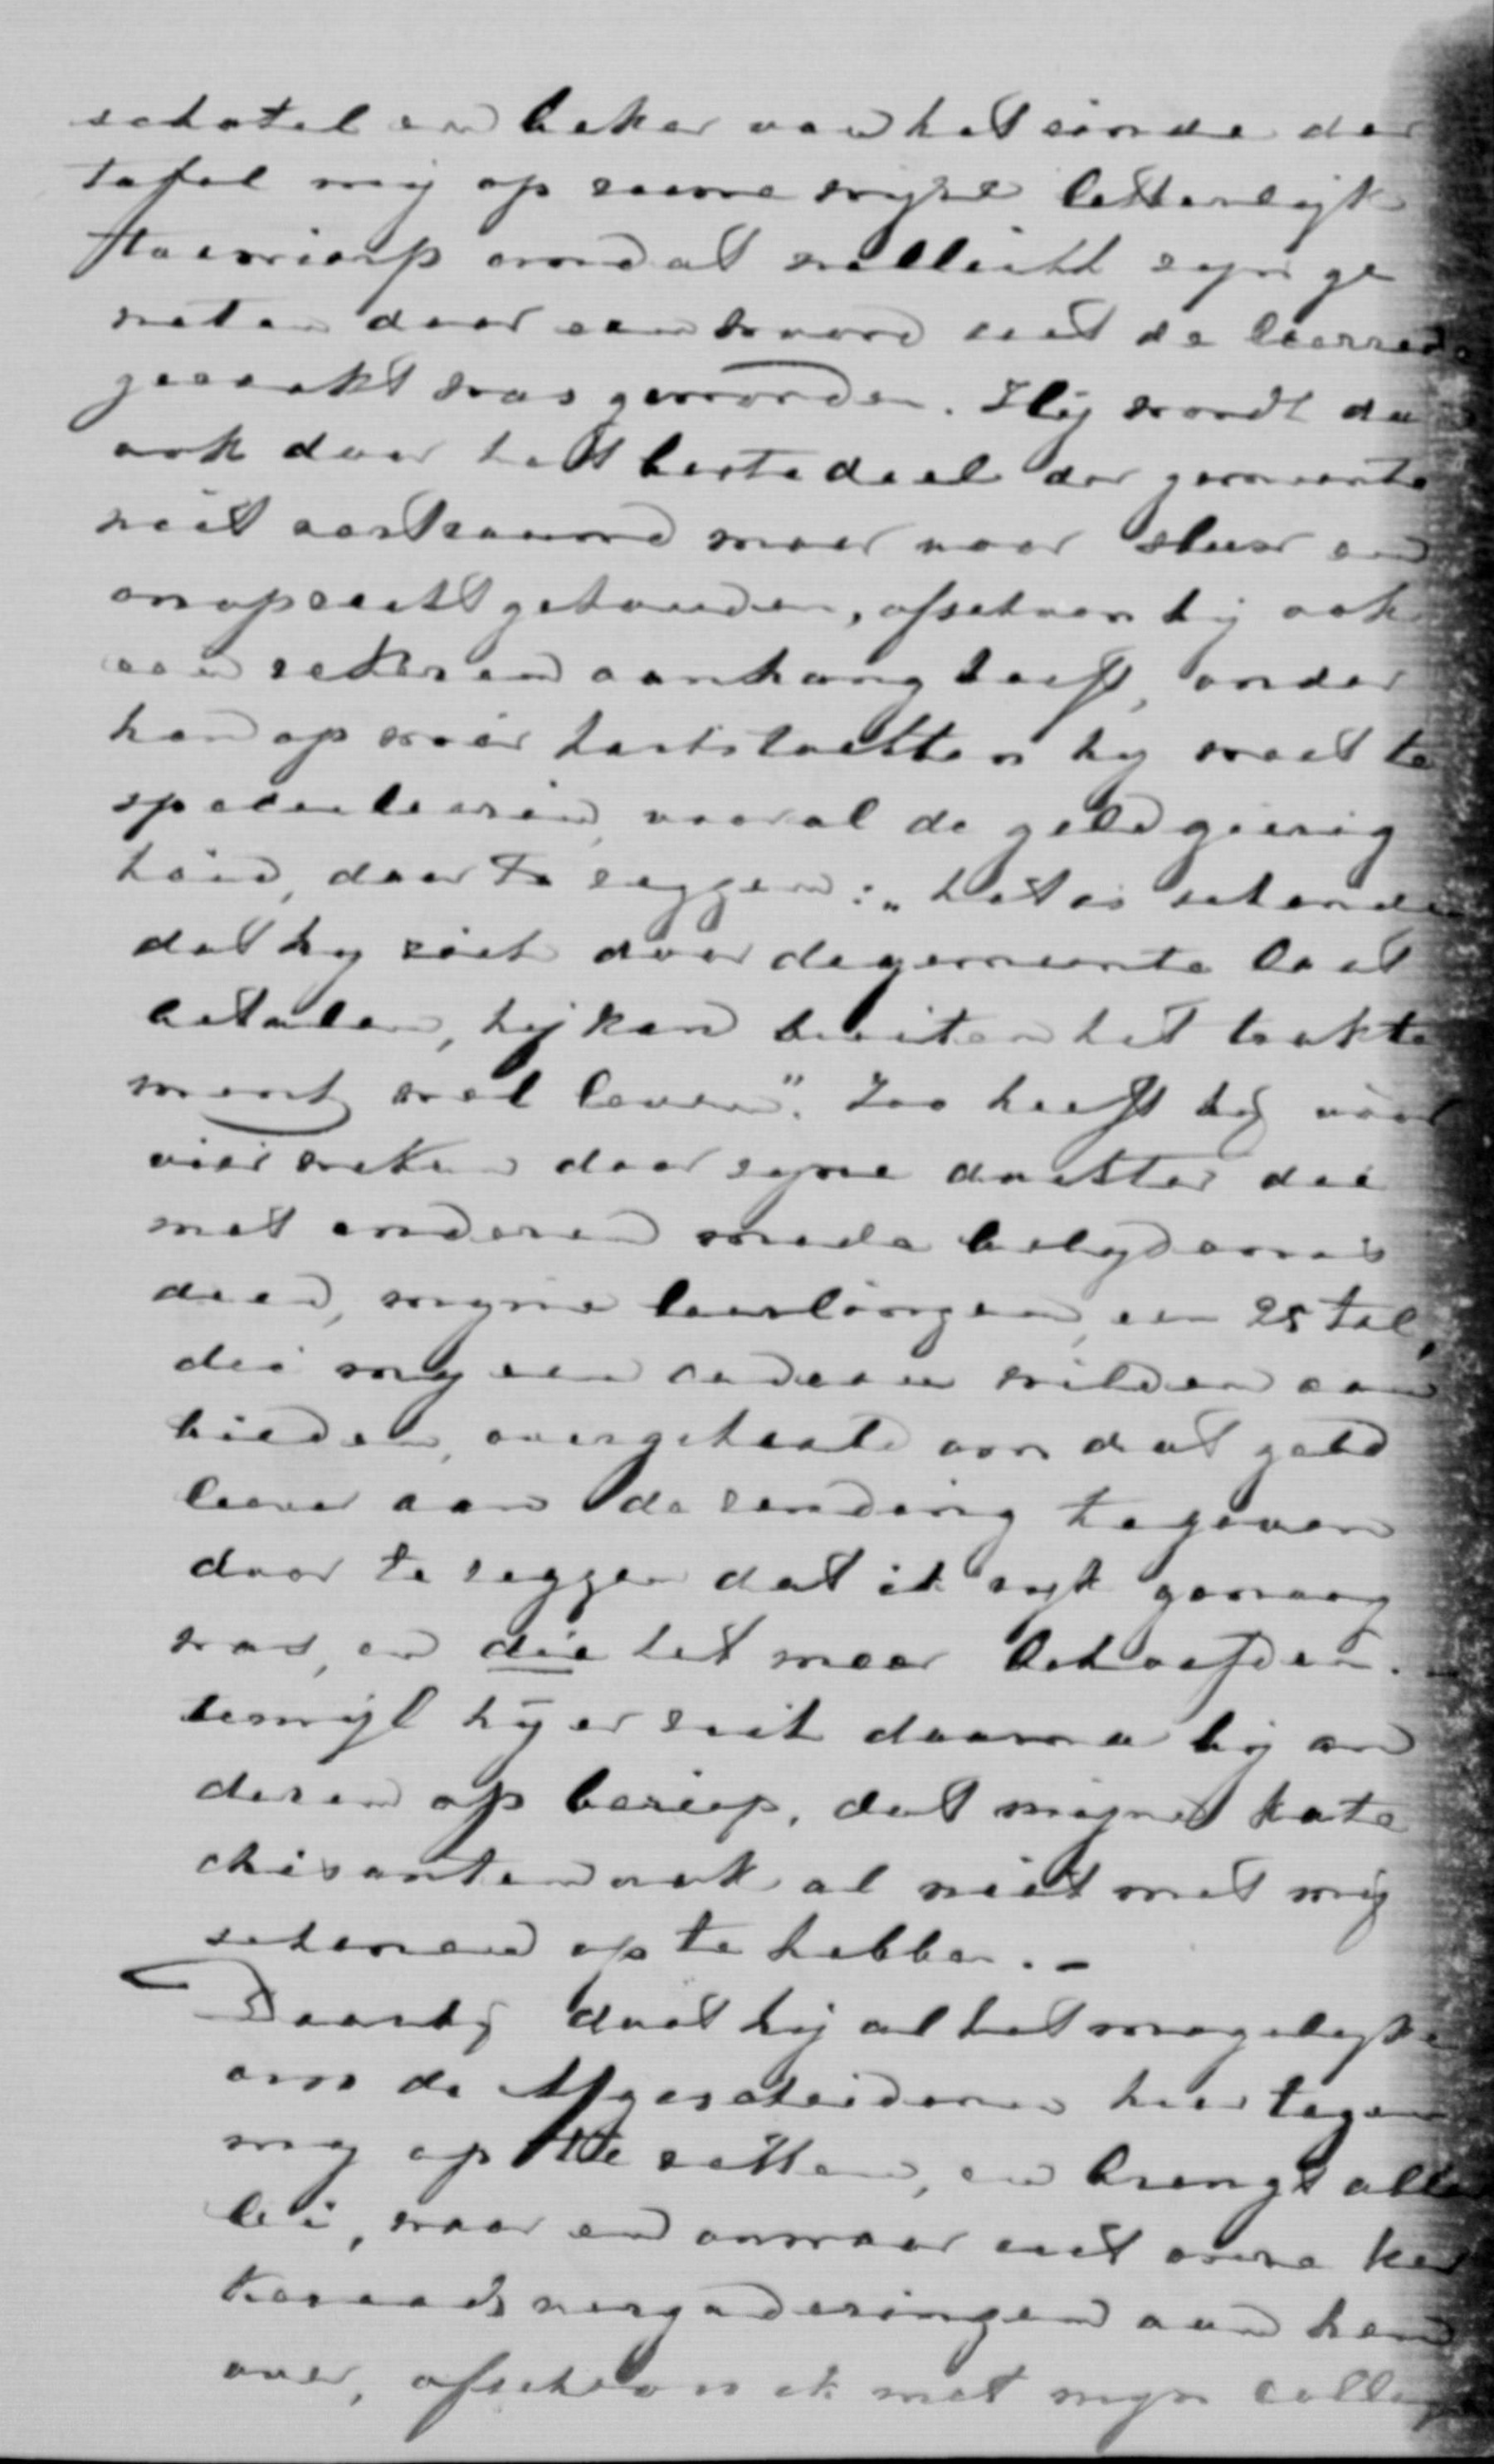 schotel en beker van het einde der
tafel mij op ruwe wijze letterlijk
toewierp omdat wellicht zijn ge
weten door een woord uit de leerrede
geraakt was geworden. Hij wordt dan
ook door het beste deel der gemeente
niet vertrouwd maar voor sluw en
onoprecht gehouden, ofschoon hij ook
een zekeren aanhang heeft, onder
hen op wier hartstochten hij weet te
speculeeren, vooral de geldgierig
heid, door te zeggen: „het is schande
dat hij zich door de gemeente laat
betalen, hij kan buiten het trakte
ment wel leven". Zoo heeft hij voor
vier weken door zijne dochter die
met anderen mede belijdenis
deed, mijne leerlingen, een 25 tal,
die mij een cadeau wilden aan
bieden, overgehaald om dat geld
liever aan de zending te geven
door te zeggen dat ik rijk genoeg
was, en die het meer behoefden. –
terwijl hij er zich daarna bij an
deren op beriep, dat mijne kate
chisanten ook al niet met mij
schenen op te hebben. –
Daarbij doet hij al het mogelijke
om de Afgescheidenen hier tegen
mij op te zetten, en brengt aller
lei, waar en onwaar uit onze ker
keraads vergaderingen aan hen
over, ofschoon ik met mijn colle